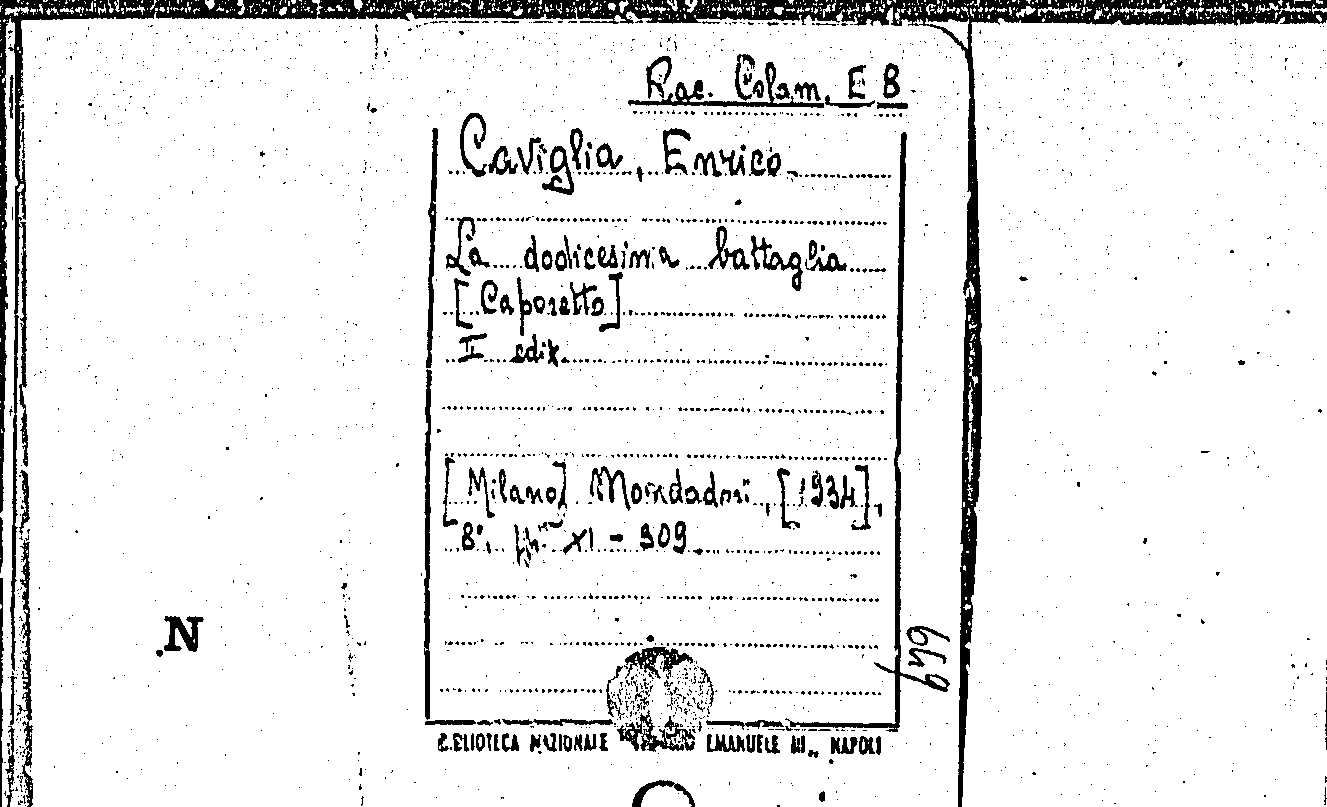 Rac. Colam. E 8
Caviglia, Enrico.
La dodicesima battaglia
[Caporetto]
II ediz.
[Milano] Mondadori, [1934],
8°. pp. XI - 309.
N
649
BIBLIOTECA NAZIONALE EMANUELE III, NAPOLI